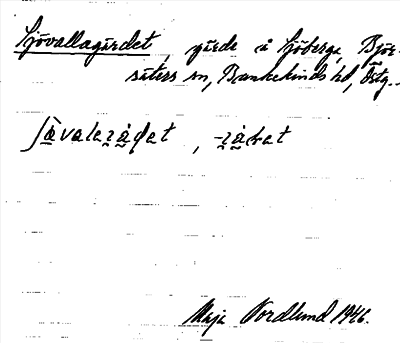 Sjövallagärdet, gärde å Sjöberga, Björ-
säters sn, Bankekinds hd, Östg.
Maja Nordlund 1946.